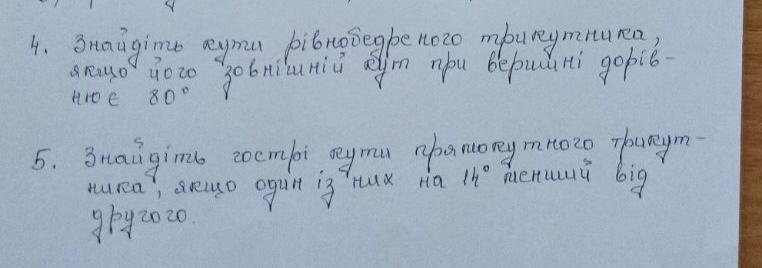 4. Знайдіть кути рівнобедреного трикутника,
якщо його зовнішній кут при вершині дорів-
нює 80°
5. Знайдіть гострі кути прямокутного трикут-
ника, якщо один із них на 14° менший від
другого.